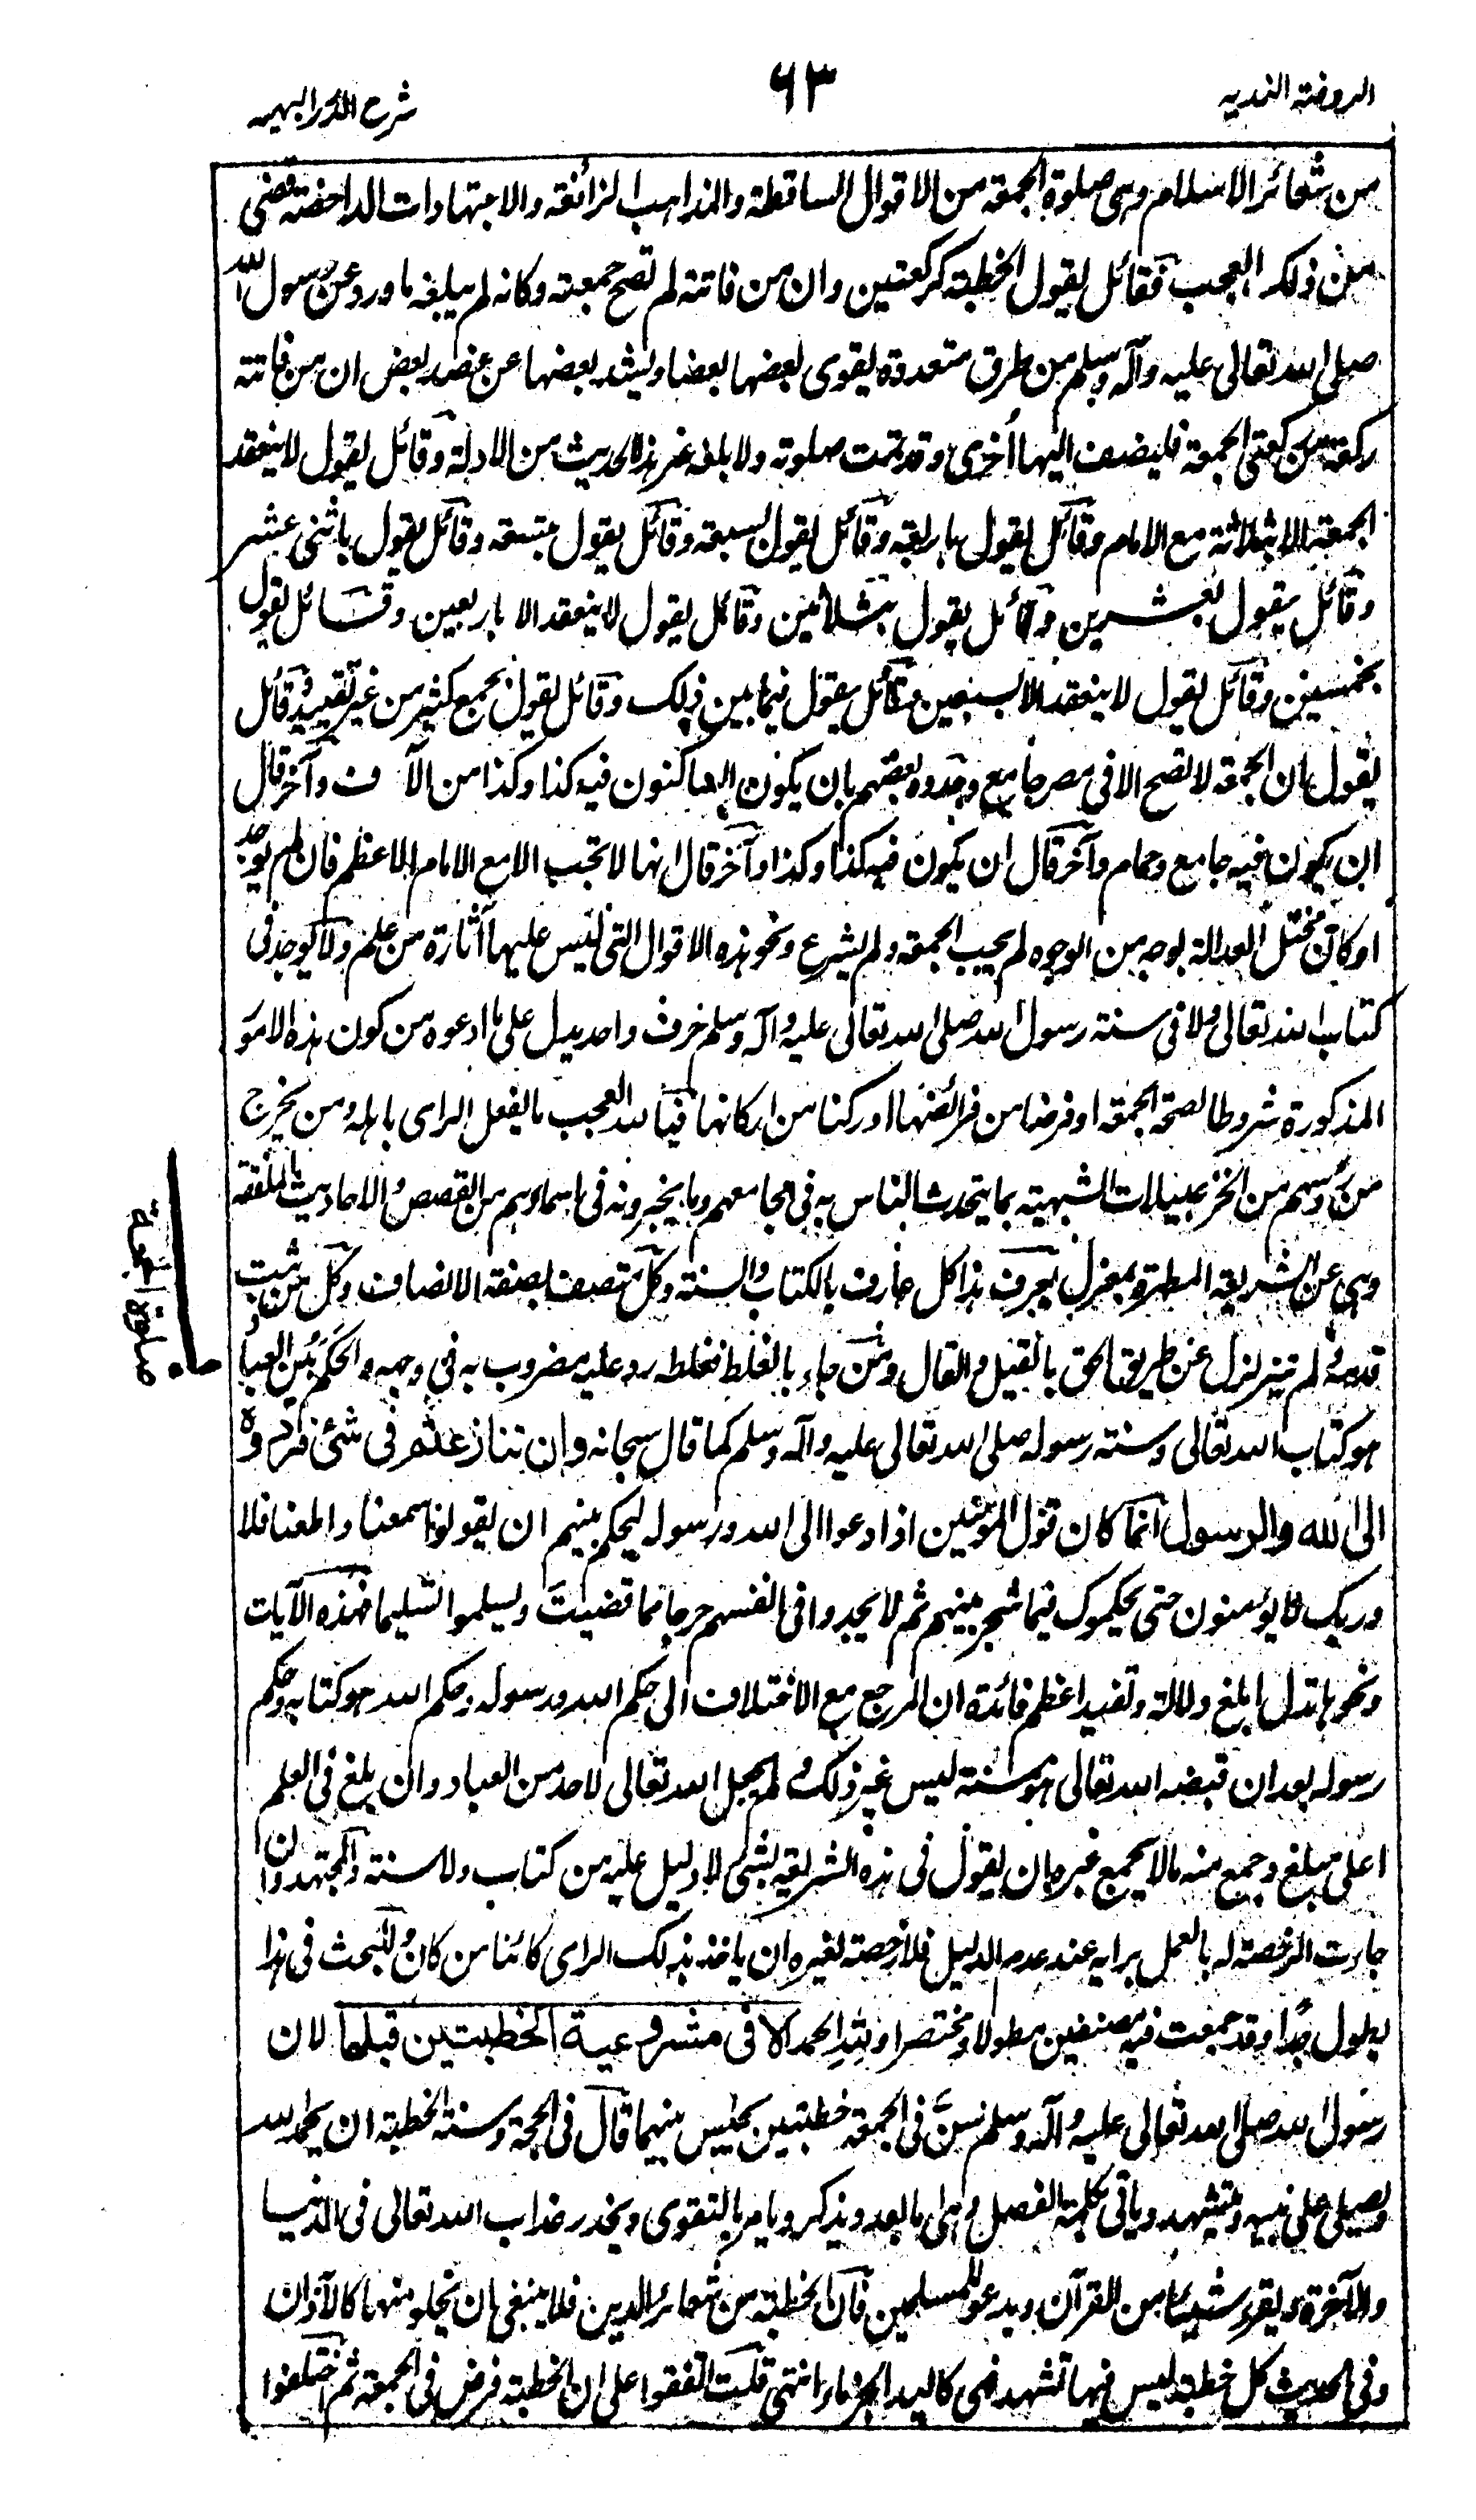 الروضة الندیه
۶۳
شرح الدرر البهیه
من شعائر الاسلام وهی صلوة الجمعة من الاقوال الساقطة والمذاهب الزائغة والاجتهادات الداحضة قضی
من ذلك العجب فقائل یقول الخطبة كركعتین وان من فاتته لم تصح جمعته وكانه لم یبلغه ما ورد عن رسول الله
صلی الله تعالی علیه وآله وسلم من طرق متعددة یقوی بعضها بعضا ویشد بعضها عن عضد بعض ان من فاتته
ركعة من ركعتی الجمعة فلیضف الیها اُخری وقد تمت صلوته ولا بلغه غیر هذا الحدیث من الادلة وقائل یقول لا ینعقد
الجمعة الا بثلاثة مع الامام وقائل یقول باربعة وقائل یقول بسبعة وقائل یقول بتسعة وقائل یقول باثنی عشر
وقائل یقول بعشرین وقائل یقول بثلاثین وقائل یقول لا ینعقد الا باربعین وقائل یقول
بخمسین وقائل یقول لا ینعقد الا بسبعین وقائل یقول فیما بین ذلك وقائل یقول بجمع كثیر من غیر تقیید وقائل
یقول ان الجمعة لا تصح الا فی مصر جامع وحدده بعضهم بان یكون الساكنون فیه كذا وكذا من الآف وآخر قال
ان یكون فیه جامع وحمام وآخر قال ان یكون فیه كذا وكذا وآخر قال انها لا تجب الا مع الامام الاعظم فان لم یوجد
او كان مختل العدالة بوجه من الوجوه لم یجب الجمعة ولم یشرع ونحو هذه الاقوال التی لیس علیها اثارة من علم ولا یوجد فی
كتاب الله تعالی ولا فی سنة رسول الله صلی الله تعالی علیه وآله وسلم حرف واحد یدل علی ما ادعوه من كون هذه الامور
المذكورة شروطا لصحة الجمعة او فرضا من فرائضها او ركنا من اركانها فیالله العجب ما یفعل الرای باهله ومن یخرج
من رؤسهم من الخزعبیلات الشبیهة بما یتحدث الناس به فی مجامعهم وما یخبرونه فی اسمارهم من القصص والاحادیث الملفقة
وهی عن الشریعة المطهرة بمعزل یعرف هذا كل عارف بالكتاب والسنة وكل متصف بصفة الانصاف وكل من ثبت
قدمه ولم یتزلزل عن طریق الحق بالقیل والقال ومن جاء بالغلط فغلطه رد علیه مضروب به فی وجهه والحكم بین العباد
هو كتاب الله تعالی وسنة رسوله صلی الله تعالی علیه وآله وسلم كما قال سبحانه وان تنازعتم فی شئ فردوه
الی الله والرسول انما كان قول المؤمنین اذا دعوا الی الله ورسوله لیحكم بینهم ان یقولوا سمعنا واطعنا فلا
وربك لا یؤمنون حتی یحكموك فیما شجر بینهم ثم لا یجدوا فی انفسهم حرجا مما قضیت ویسلموا تسلیما فهذه الآیات
ونحوها تدل ابلغ دلالة وتفید اعظم فائدة ان المرجع مع الاختلاف الی حكم الله ورسوله وحكم الله هو كتابه وحكم
رسوله بعد ان قبضه الله تعالی هو سنته لیس غیر ذلك ولم یجعل الله تعالی لاحد من العباد وان بلغ فی العلم
اعلی مبلغ وجمع منه ما لا یجمع غیره ان یقول فی هذه الشریعة بشئ لا دلیل علیه من كتاب ولا سنة والمجتهد وان
جاءت الرخصة له بالعمل برایه عند عدم الدلیل فلا رخصة لغیره ان یاخذ بذلك الرای كائنا من كان والبحث فی هذا
یطول جدا وقد جمعت فیه مصنفین مطولا ومختصرا ولله الحمد الا فی مشروعیة الخطبتین قبلها لان
رسول الله صلی الله تعالی علیه وآله وسلم سنّ فی الجمعة خطبتین یجلس بینهما قال فی الحجة وسنة الخطبة ان یحمد الله
ویصلی علی نبیه ویتشهد ویاتی بكلمة الفصل وهی اما بعد ویذكر ویامر بالتقوی ویحذر عذاب الله تعالی فی الدنیا
والآخرة ویقرء شیئا من القرآن ویدعو للمسلمین فان الخطبة من شعائر الدین فلا ینبغی ان یخلو منها كالاذان
وفی الحدیث كل خطبة لیس فیها تشهد فهی كالید الجذماء انتهی قلت اتفقوا علی ان الخطبة فرض فی الجمعة ثم اختلفوا
صلوة الجمعة